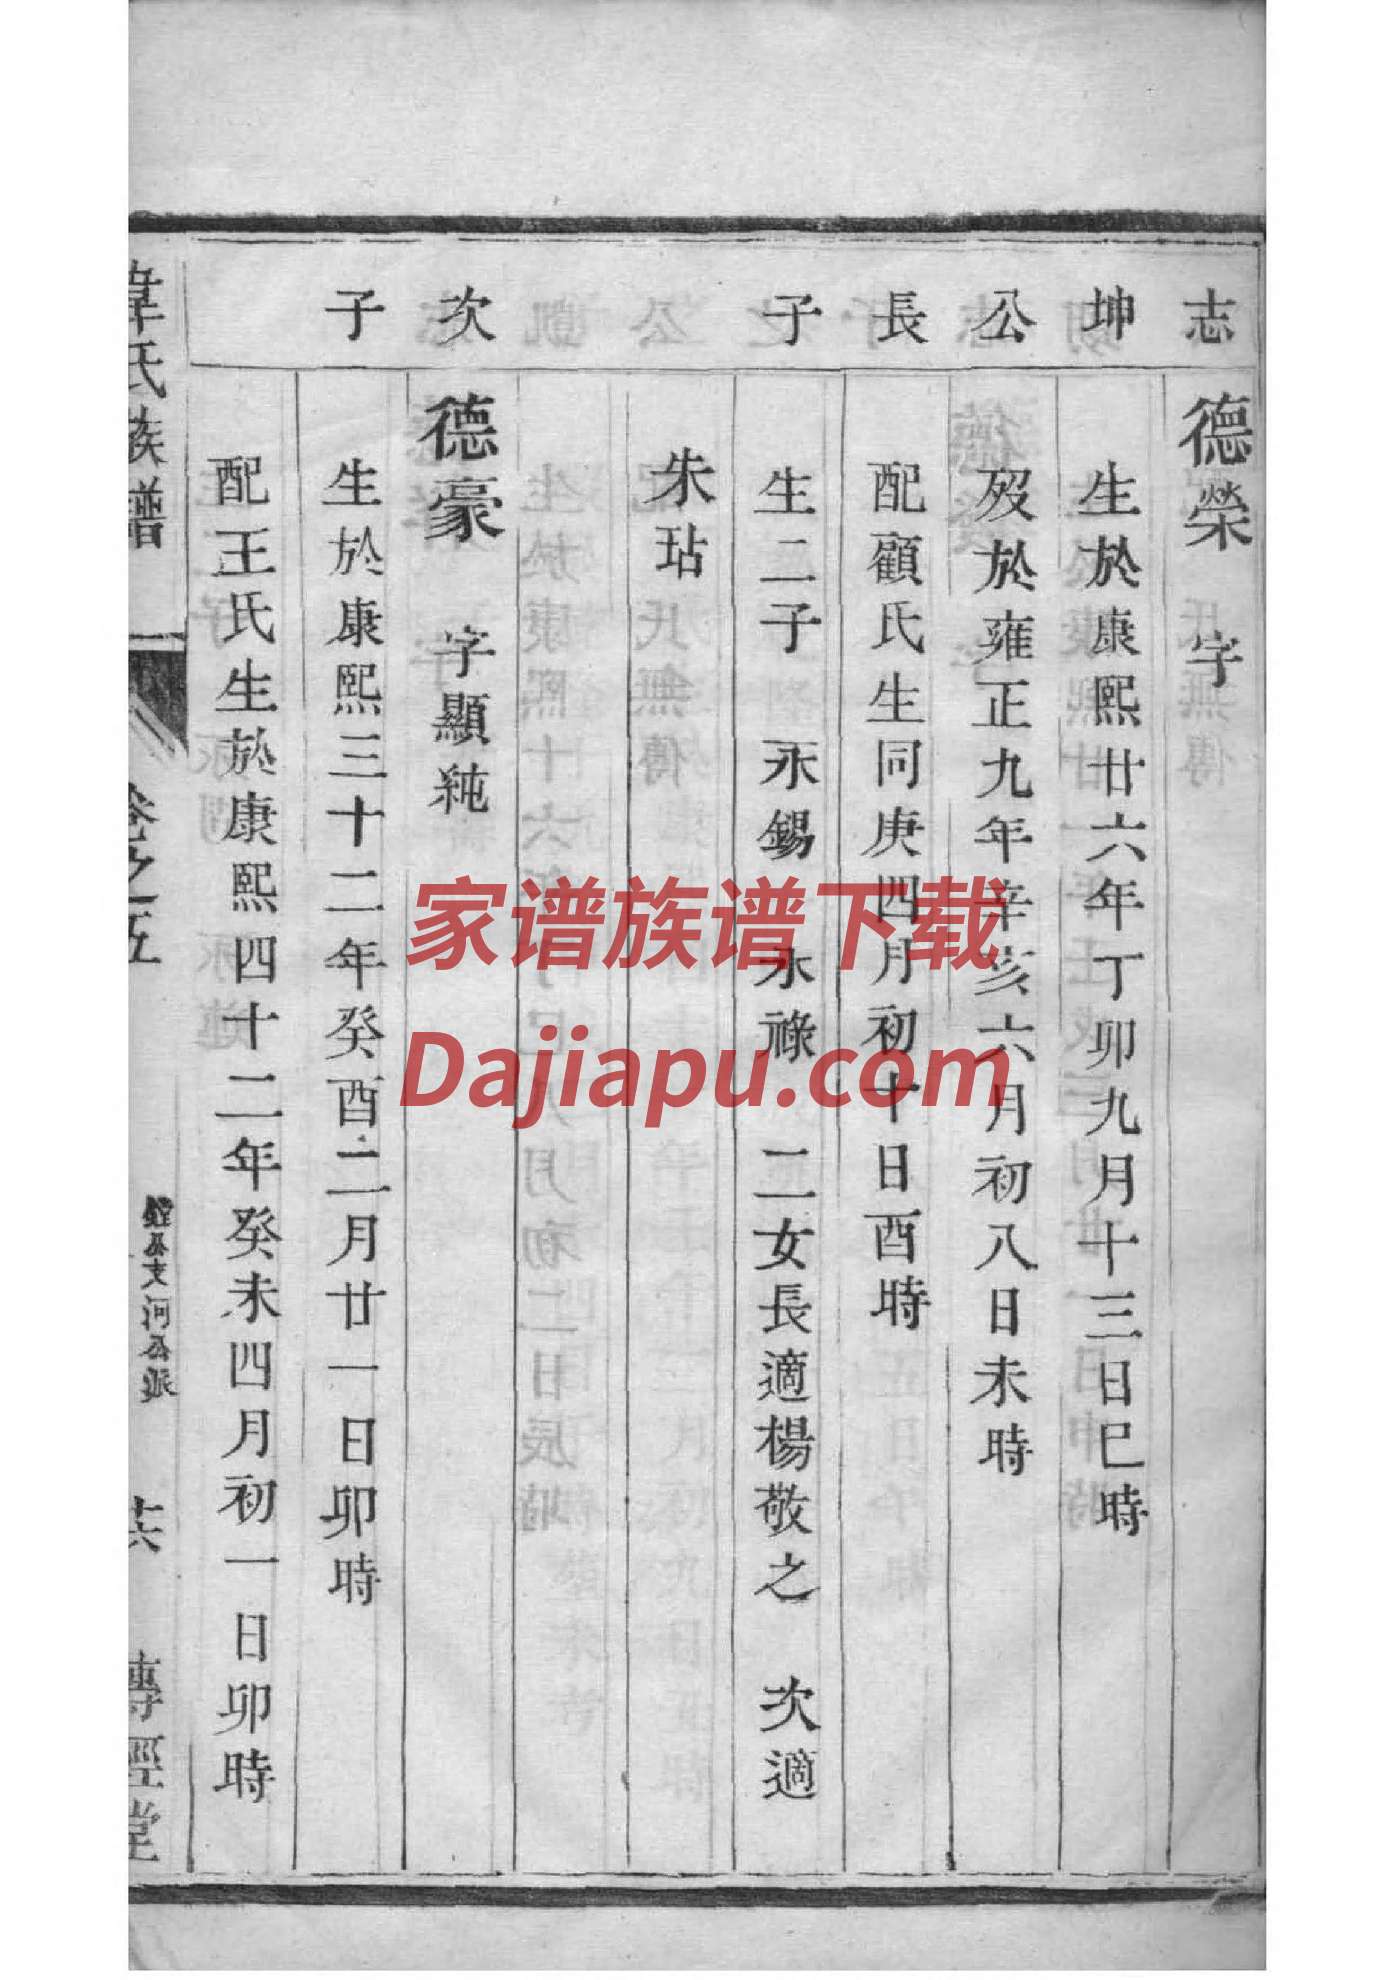 志坤公長子
德榮 字
生於康熙廿六年丁卯九月十三日巳時
歿於雍正九年辛亥六月初八日未時
配顧氏生同庚四月初十日酉時
生二子 永錫 永祿 二女長適楊敬之 次適
朱玷
次子
德豪 字顯純
生於康熙三十二年癸酉二月廿一日卯時
配王氏生於康熙四十二年癸未四月初一日卯時
韋氏族譜
卷之五
河公派
十六
傳經堂
家谱族谱下载
Dajiapu.com